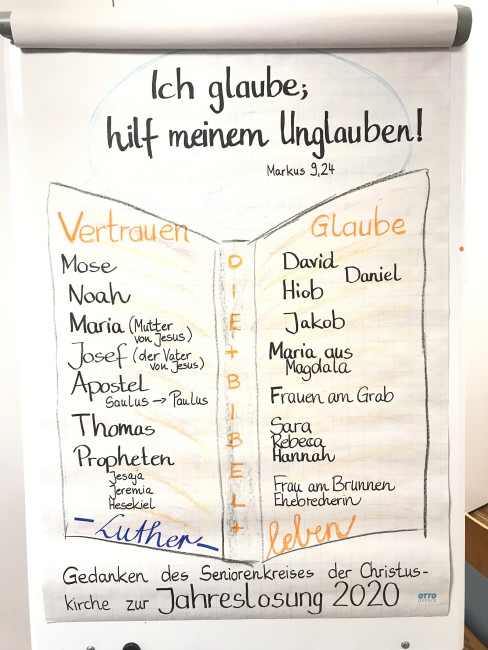 Ich glaube;
hilf meinem Unglauben!
Markus 9,24
Vertrauen
Mose
Noah
Maria (Mutter
von Jesus)
Josef (der Vater
von Jesus)
Apostel
Saulus → Paulus
Thomas
Propheten
Jesaja
Jeremia
Hesekiel
– Luther –
DIE + BIBEL +
Glaube
David
Daniel
Hiob
Jakob
Maria aus
Magdala
Frauen am Grab
Sara
Rebecca
Hannah
Frau am Brunnen
Ehebrecherin
leben
Gedanken des Seniorenkreises der Christus-
kirche zur Jahreslosung 2020
OTTO